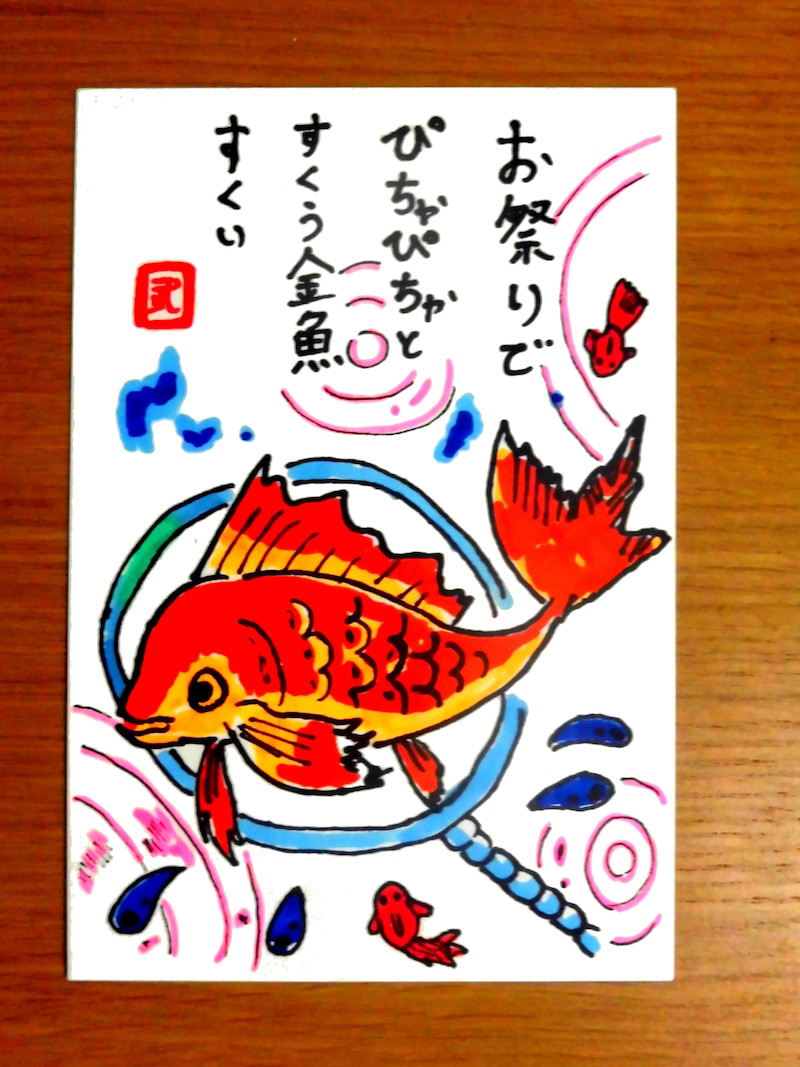 お祭りで
ぴちゃぴちゃと
すくう金魚
すくい